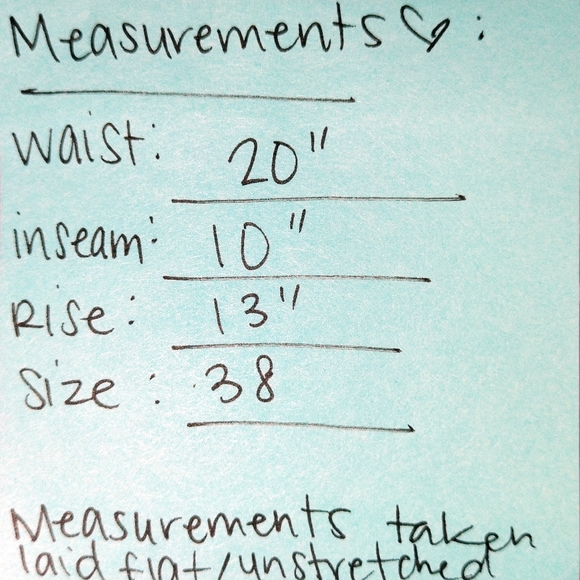 Measurements ♡ :
waist: 20"
inseam: 10"
Rise: 13"
Size: 38
Measurements taken
laid flat/unstretched